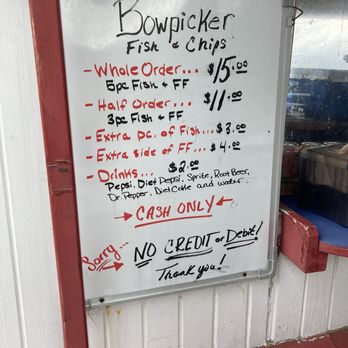 Bowpicker
Fish & Chips
- Whole Order... $15.00
5pc Fish & FF
- Half Order... $11.00
3pc Fish & FF
- Extra pc. of Fish... $3.00
- Extra side of FF... $4.00
- Drinks... $2.00
Pepsi, Diet Pepsi, Sprite, Root Beer,
Dr. Pepper, Diet Coke and water.
→ CASH ONLY ←
Sorry... → NO CREDIT or Debit!
Thank you!